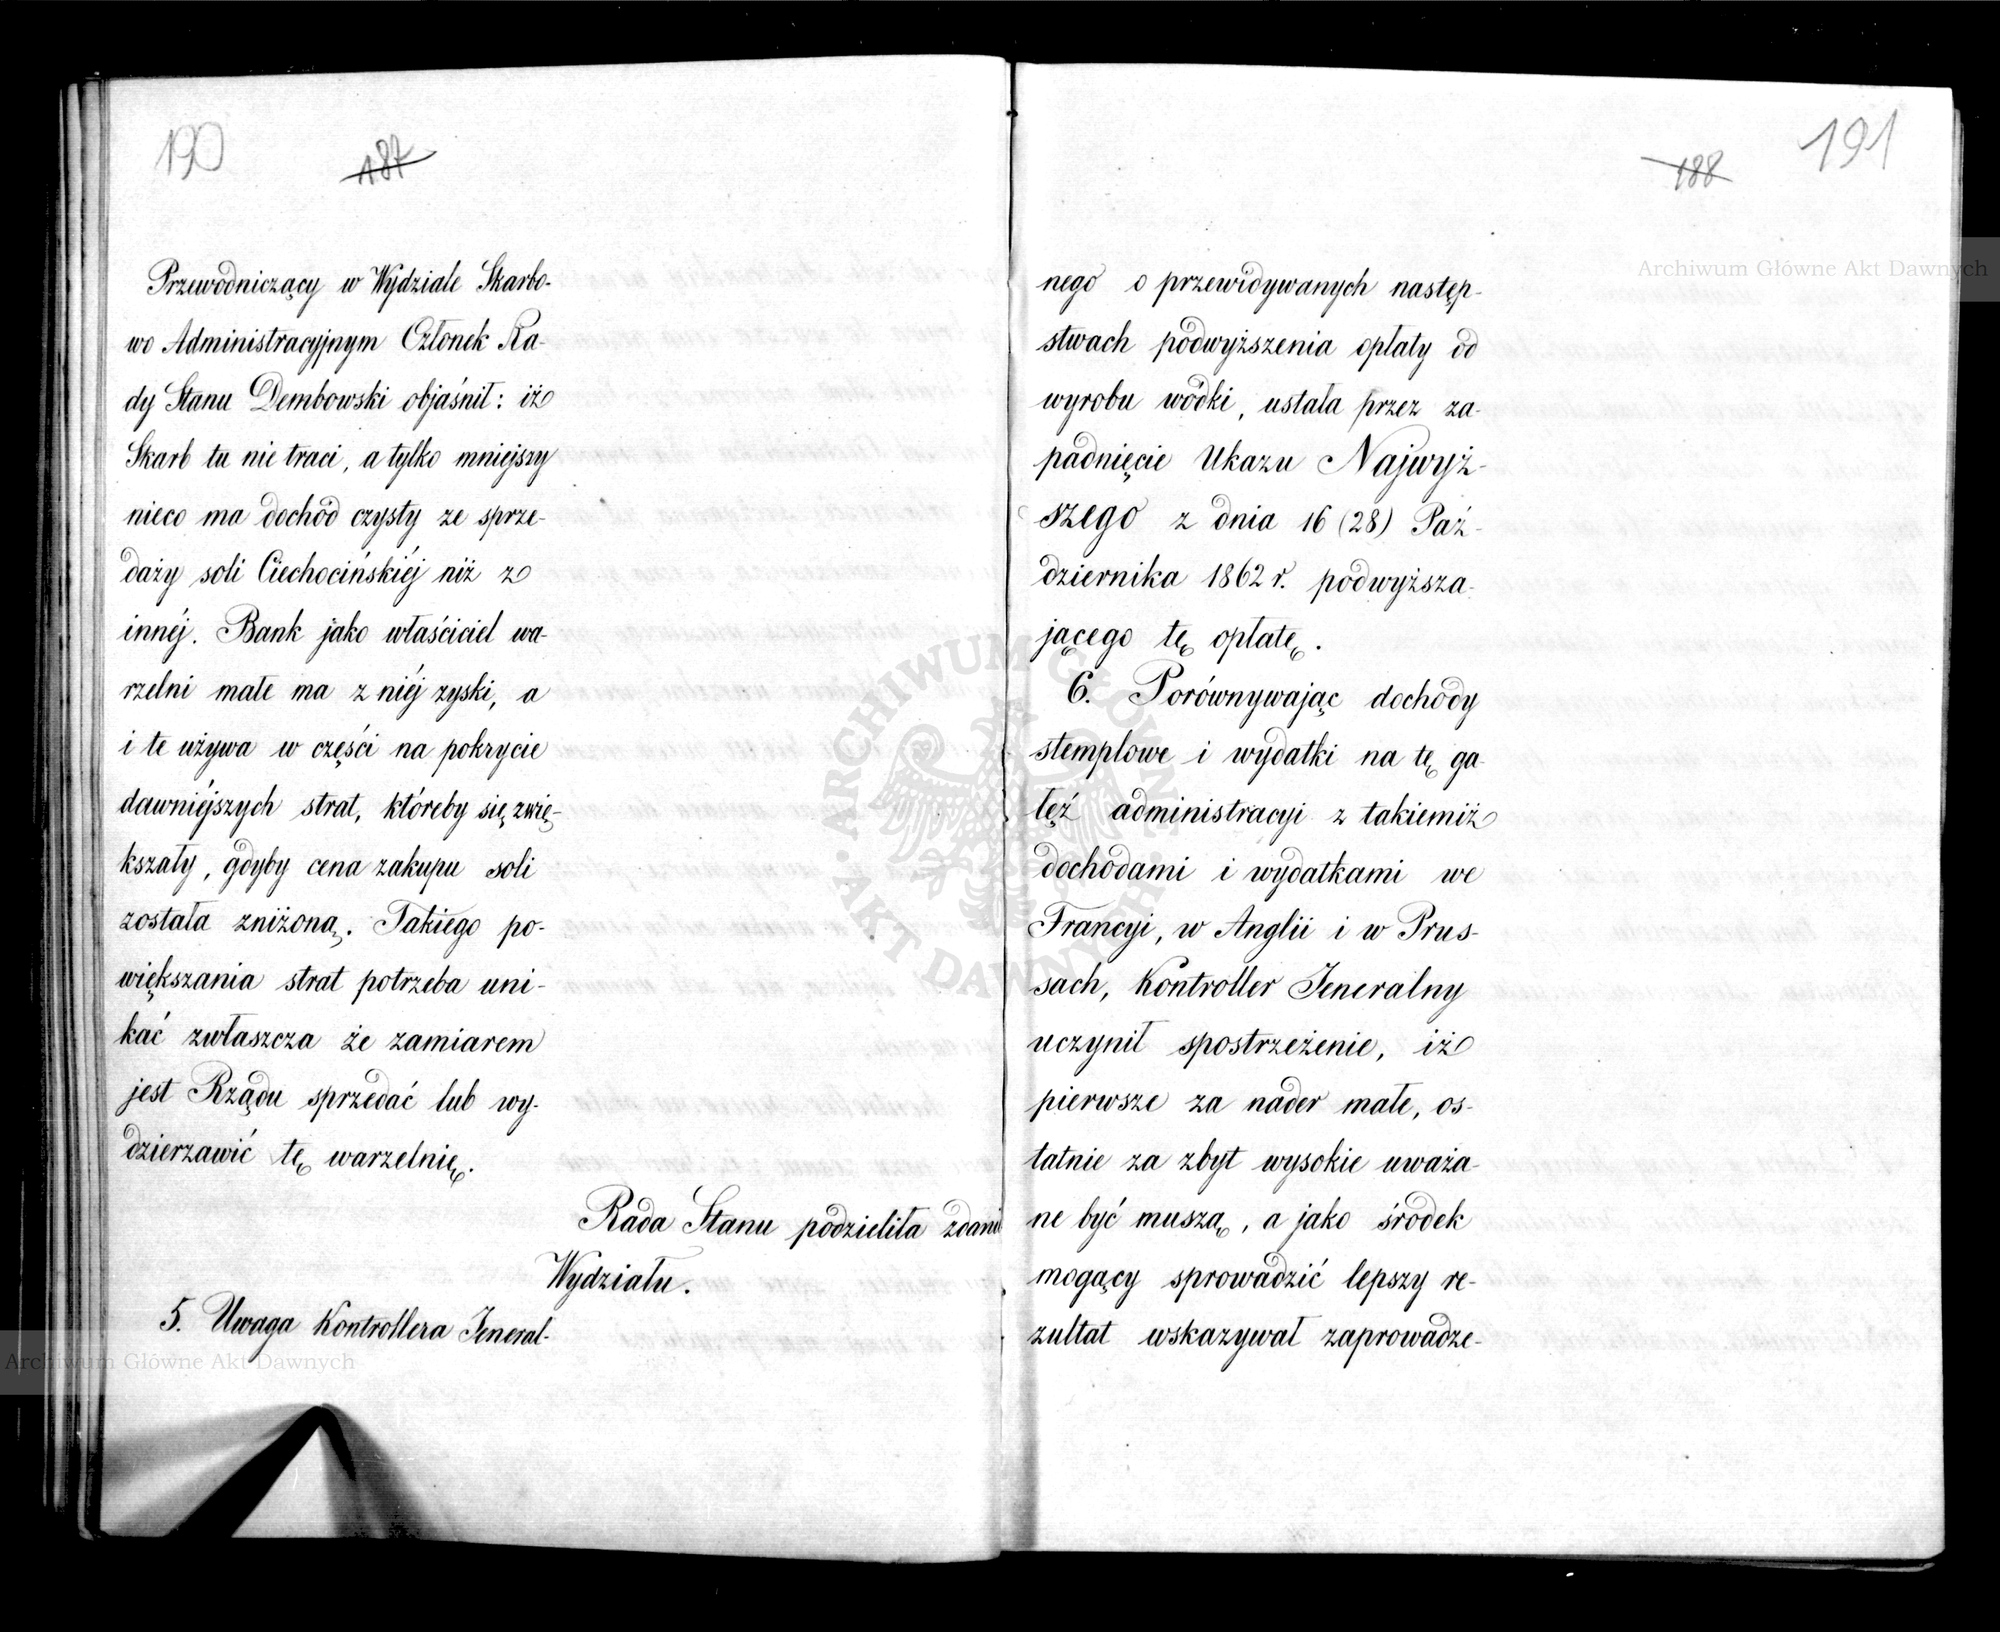 190
187
Przewodniczący w Wydziale Skarbo-
wo Administracyjnym Członek Ra-
dy Stanu Dembowski objaśnił: iż
Skarb tu nie traci, a tylko mniejszy
nieco ma dochód czysty ze sprze-
daży soli Ciechocińskiéj niż z
innéj. Bank jako właściciel wa-
rzelni małe ma z niéj zyski, a
i te używa w części na pokrycie
dawniéjszych strat, któreby się zwię-
kszały, gdyby cena zakupu soli
została zniżoną. Takiego po-
większania strat potrzeba uni-
kać zwłaszcza że zamiarem
jest Rządu sprzedać lub wy-
dzierzawić tę warzelnię.
Rada Stanu podzieliła zdani
Wydziału.
5. Uwaga Kontrollera Jeneral-
191
188
nego o przewidywanych następ-
stwach podwyższenia opłaty od
wyrobu wódki, ustała przez za-
padnięcie Ukazu Najwyż-
szego z dnia 16 (28) Paź-
dziernika 1862 r. podwyższa-
jącego tę opłatę.
6. Porównywając dochody
stemplowe i wydatki na tę ga-
łęź administracyi z takiemiż
dochodami i wydatkami we
Francyi, w Anglii i w Prus-
sach, Kontroller Jeneralny
uczynił spostrzeżenie, iż
pierwsze za nader małe, os-
tatnie za zbyt wysokie uważa-
ne być muszą, a jako środek
mogący sprowadzić lepszy re-
zultat wskazywał zaprowadze-
Archiwum Główne Akt Dawnych
Archiwum Główne Akt Dawnych
ARCHIWUM GŁÓWNE AKT DAWNYCH